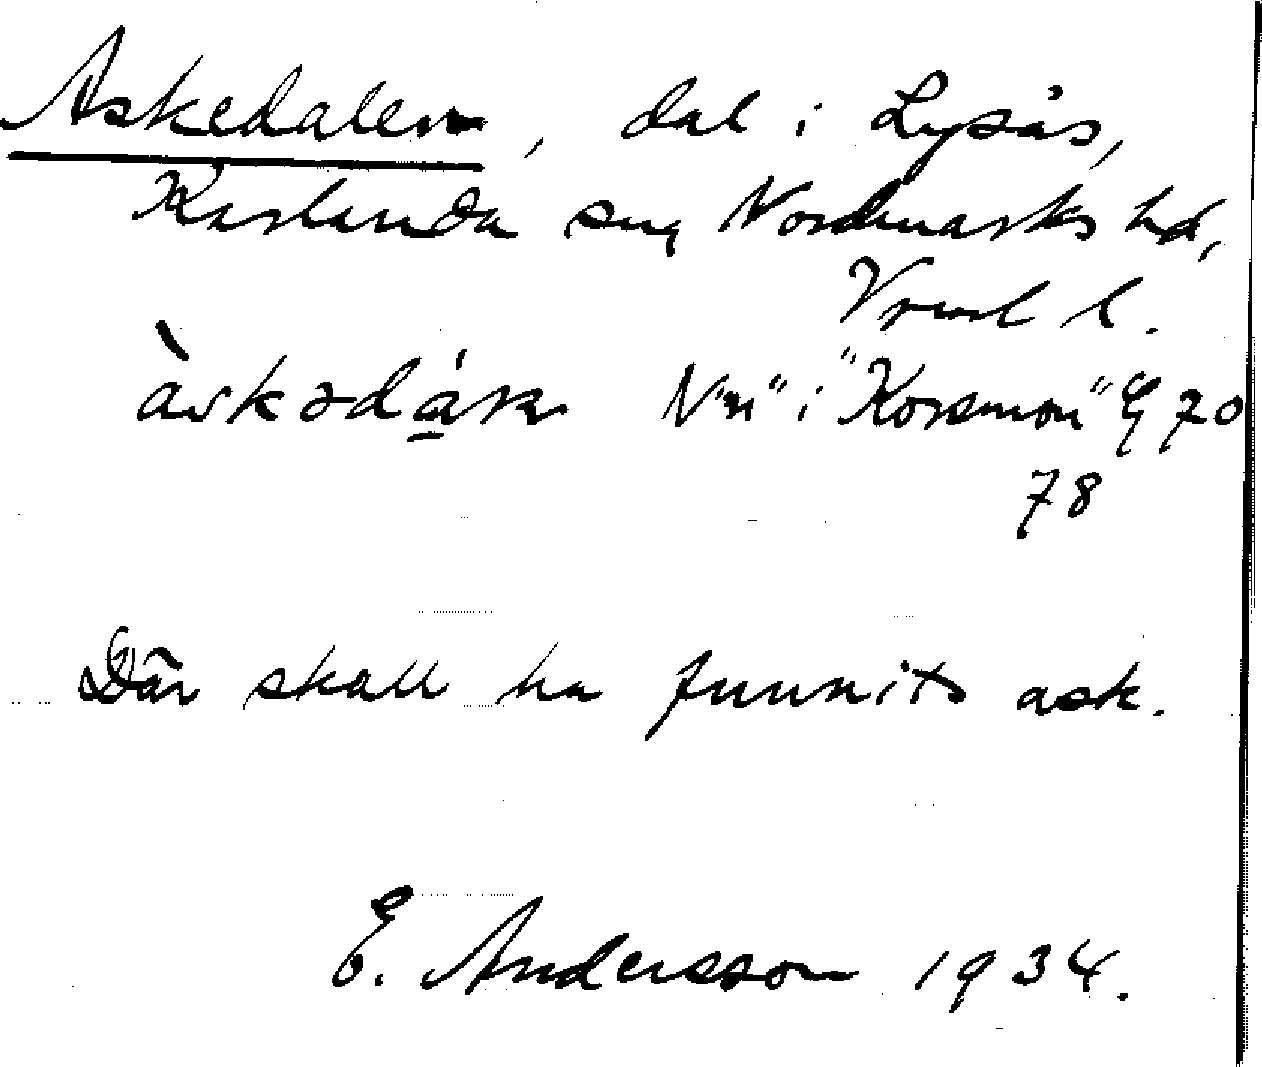 Askedalen, dal i Lysås,
Karlanda sn, Nordmarks hd,
Vrml l.
N "n" i "Korsmon" E 70
78
Där skall ha funnits ask.
E. Andersson 1934.